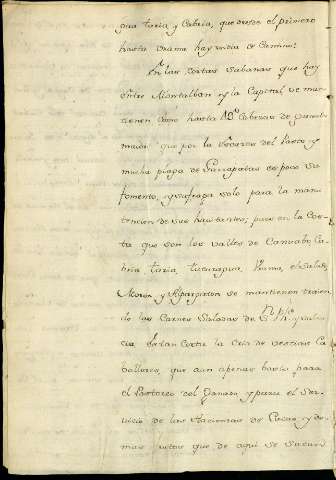 guataria, y Cabria, que desde el primero
hasta Urama hay un dia de Camino:
En las cortas sabanas que hay
entre Montalban y la Capital, se man-
tienen como hasta 10@ Cabezas de Ganado
maior que por lo escaso del Pasto, y
mucha plaga de Garrapatas es poco su
fomento, y sufraga solo para la manu-
tencion de sus havitantes; pues en la Cos-
ta que son los valles de Canoabo, Ca-
bria, taria, Urama, el Salado,
Moron y Alpargaton se mantienen traien-
do las Carnes Saladas de
cia es tan corta la Cria de vestias Ca-
ballares, que aun apenas basta para
el Pastoreo del Ganado, y para el Ser-
vicio de las Haciendas de Cacao, y de-
mas frutos que de aqui se sacan